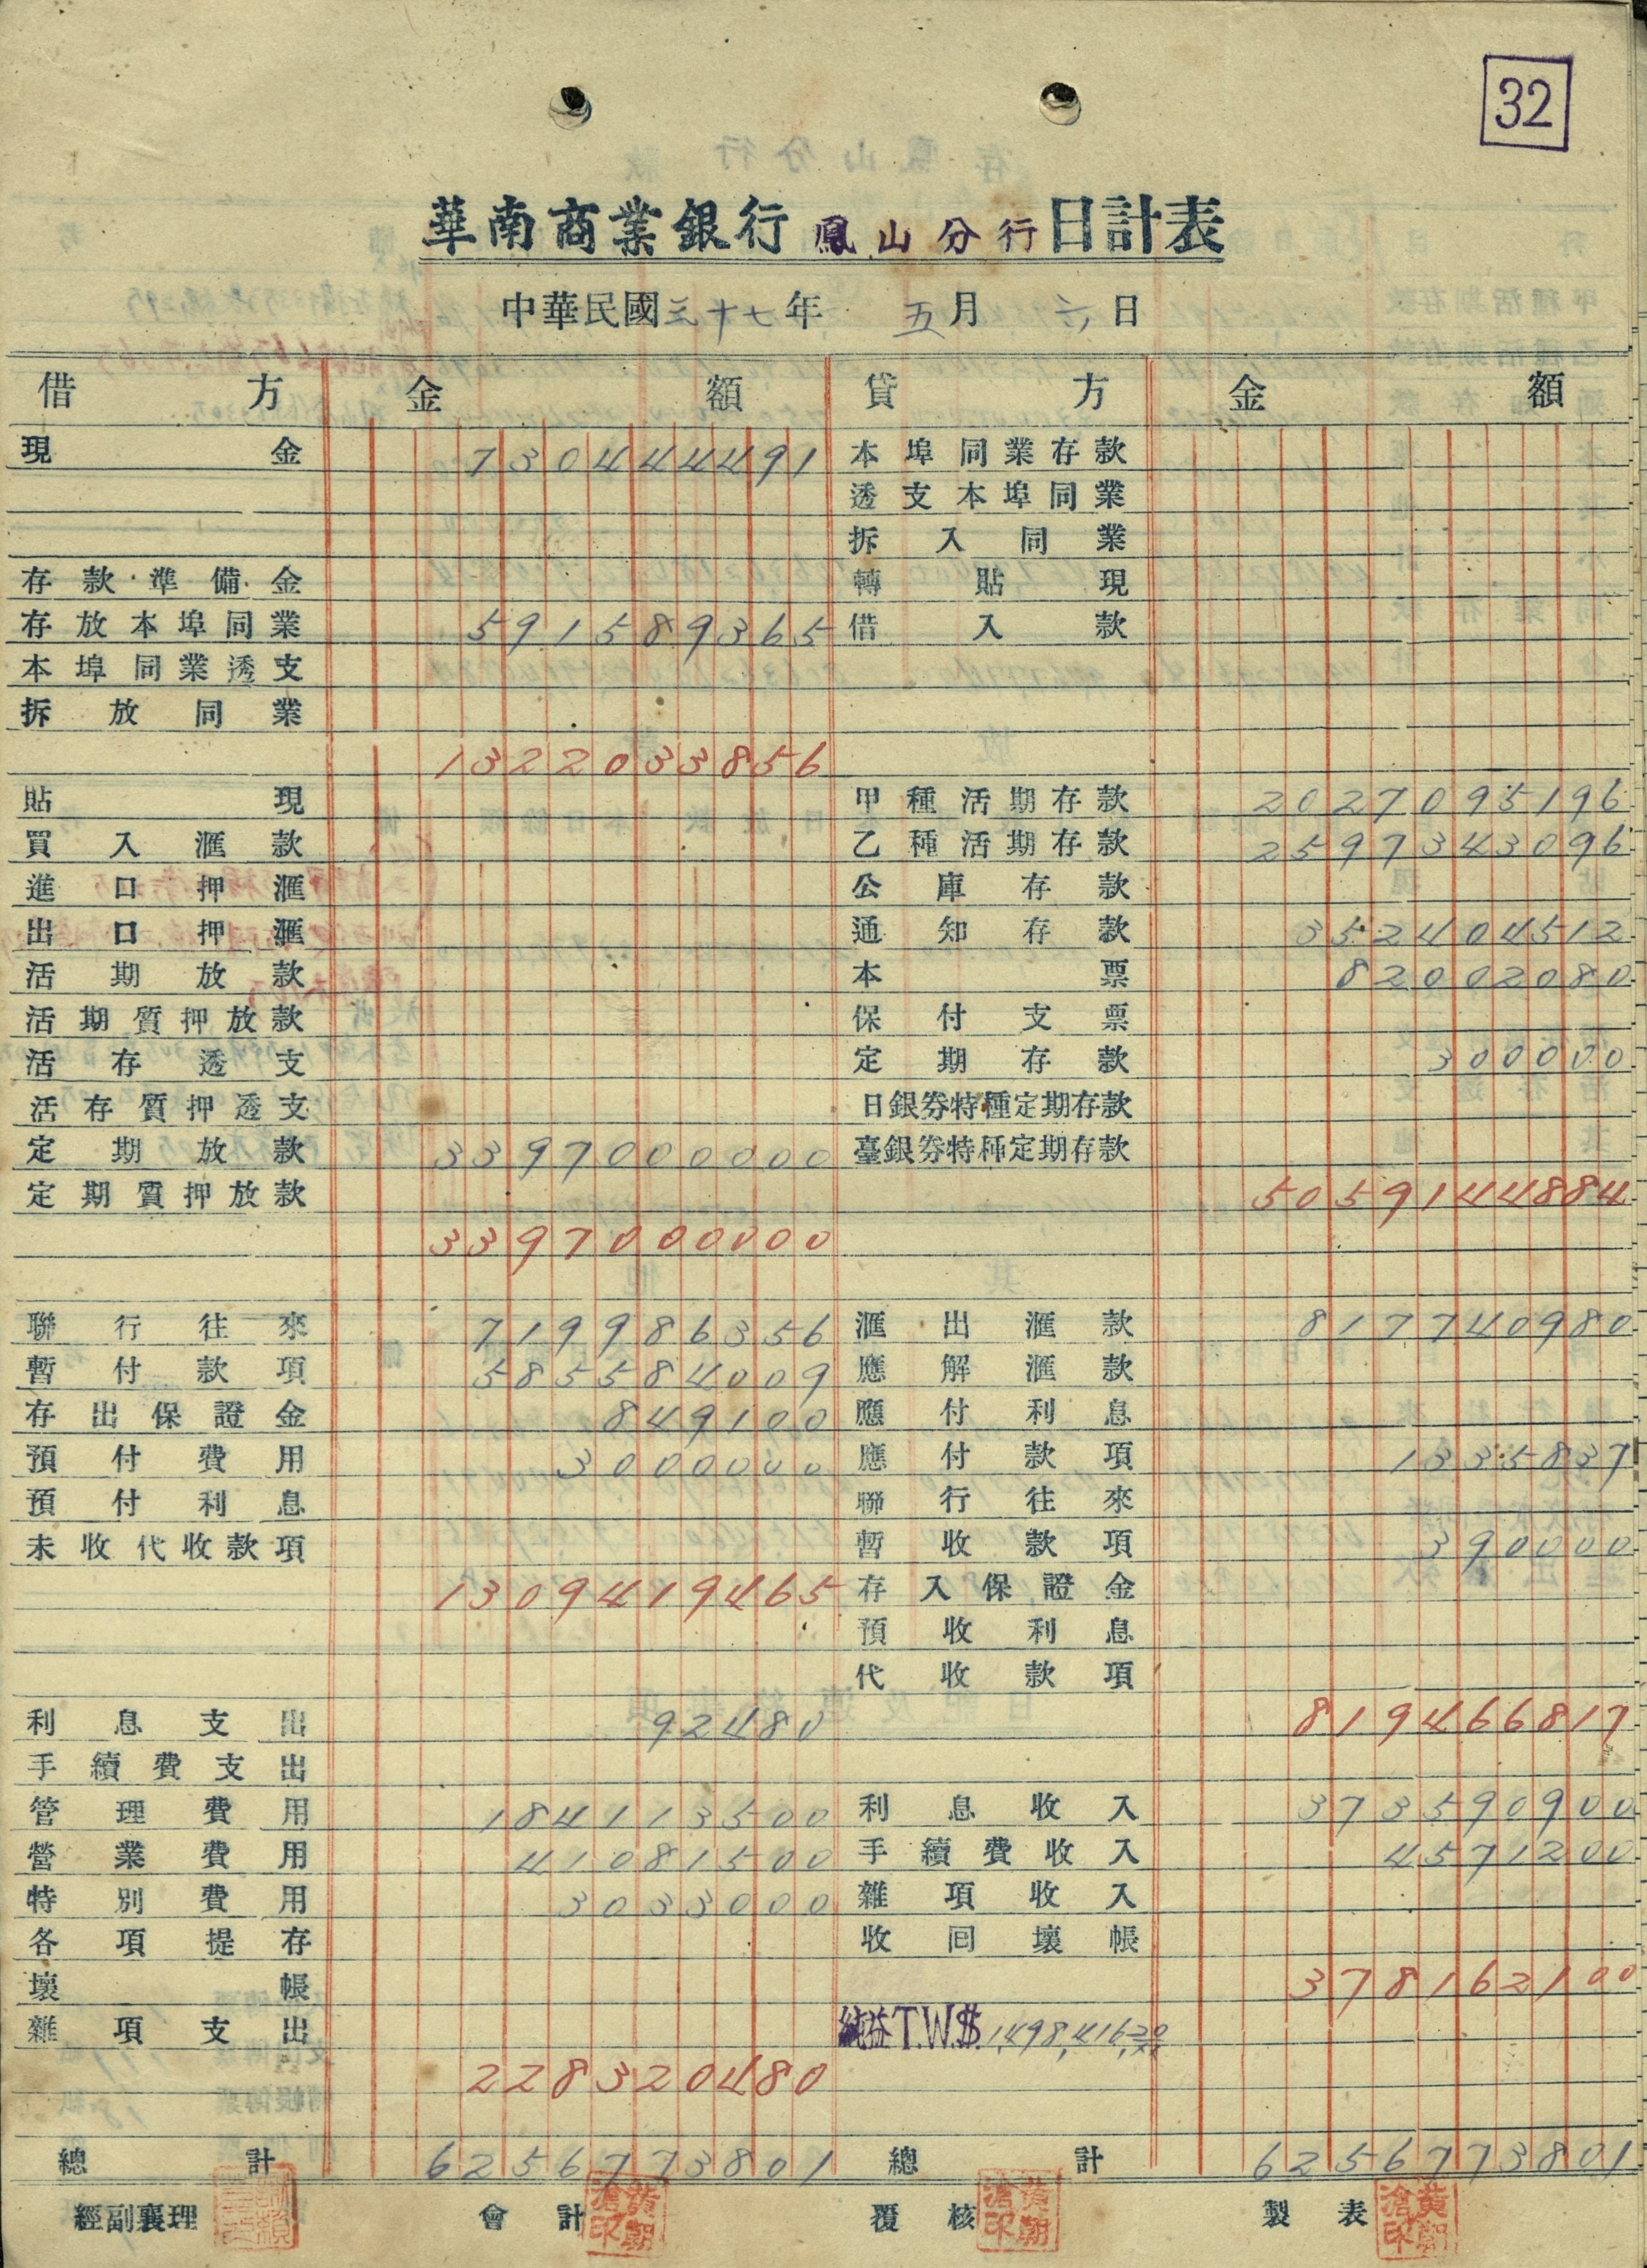 32
華南商業銀行鳳山分行日計表
中華民國三十七年 五月 六日
借方 金額 貸方 金額
現金 730444491 本埠同業存款
透支本埠同業
拆入同業
存款準備金 轉貼現
存放本埠同業 591589365 借入款
本埠同業透支
拆放同業
1322033856
貼現 甲種活期存款 2027095196
買入滙款 乙種活期存款 2597343096
進口押滙 公庫存款
出口押滙 通知存款 352404512
活期放款 本票 82002080
活期質押放款 保付支票
活存透支 定期存款 300000
活存質押透支 日銀券特種定期存款
定期放款 3397000000 臺銀券特種定期存款
定期質押放款 5059144884
3397000000
聯行往來 719986356 滙出滙款 817740980
暫付款項 585584009 應解滙款
存出保證金 849100 應付利息
預付費用 3000000 應付款項 1335837
預付利息 聯行往來
未收代收款項 暫收款項 390000
1309419465 存入保證金
預收利息
代收款項
利息支出 92480 819466817
手續費支出
管理費用 184113500 利息收入 373590900
營業費用 41081500 手續費收入 4571200
特別費用 3033000 雜項收入
各項提存 收回壞帳
壞帳 378162100
雜項支出 純益T.W.$.1,498,416.20
228320480
總計 6256773801 總計 6256773801
經副襄理 會計 黃朝滄印 覆核 黃朝滄印 製表 黃朝滄印